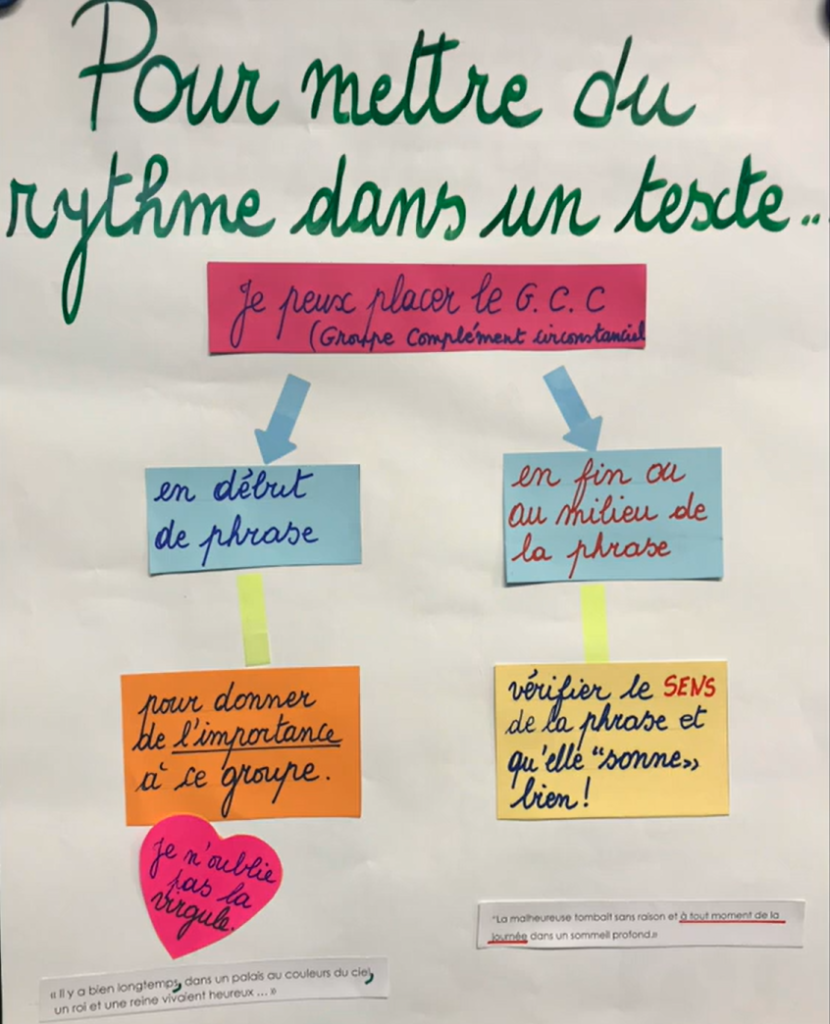 Pour mettre du
rythme dans un texte...
Je peux placer le G. C. C
(Groupe Complément Circonstanciel
en début
de phrase
en fin ou
au milieu de
la phrase
pour donner
de l'importance
à ce groupe.
vérifier le SENS
de la phrase et
qu'elle "sonne»
bien!
Je n'oublie
pas la
virgule.
"La malheureuse tombait sans raison et à tout moment de la
journée dans un sommeil profond.»
« Il y a bien longtemps, dans un palais au couleurs du ciel,
un roi et une reine vivaient heureux ... »